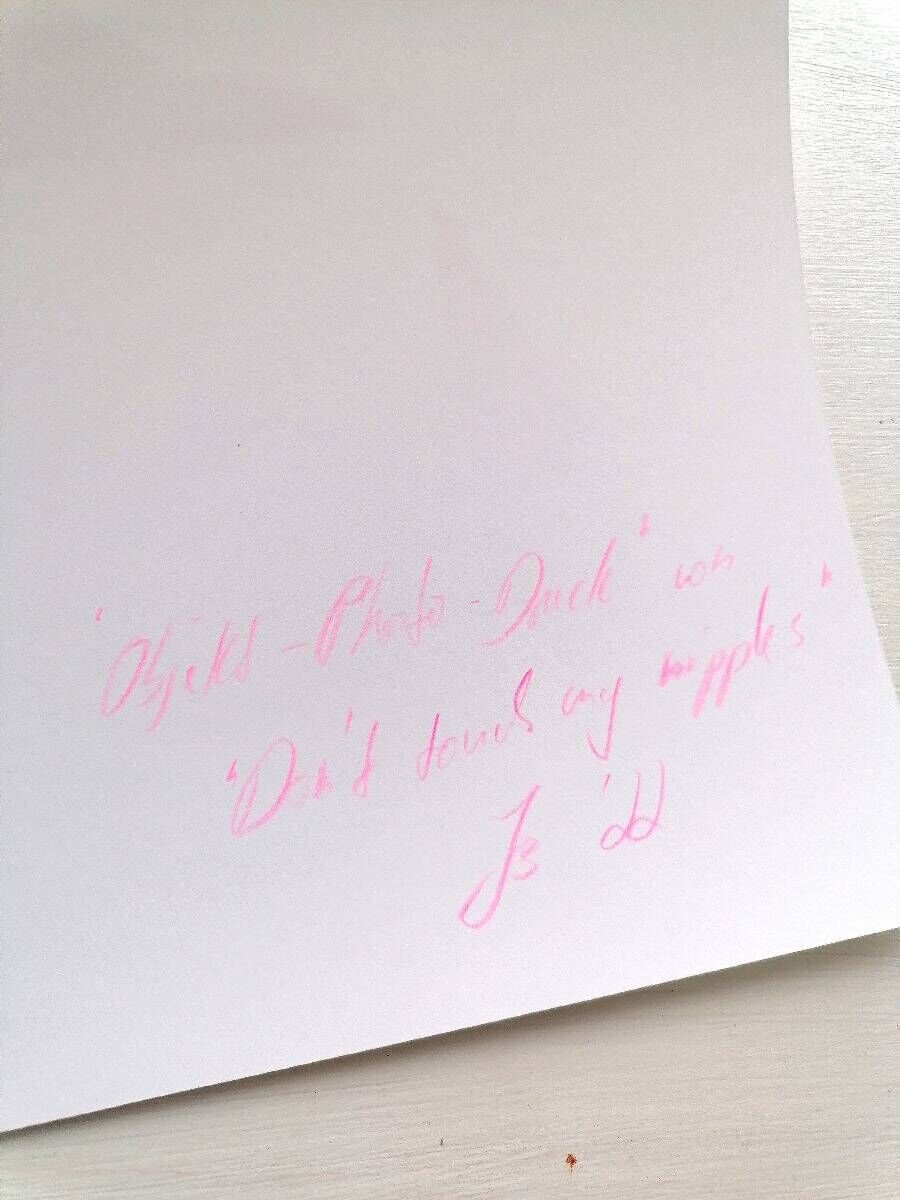 "Objekt-Photo-Druck" von
"Don't touch my nipples"
JB '22